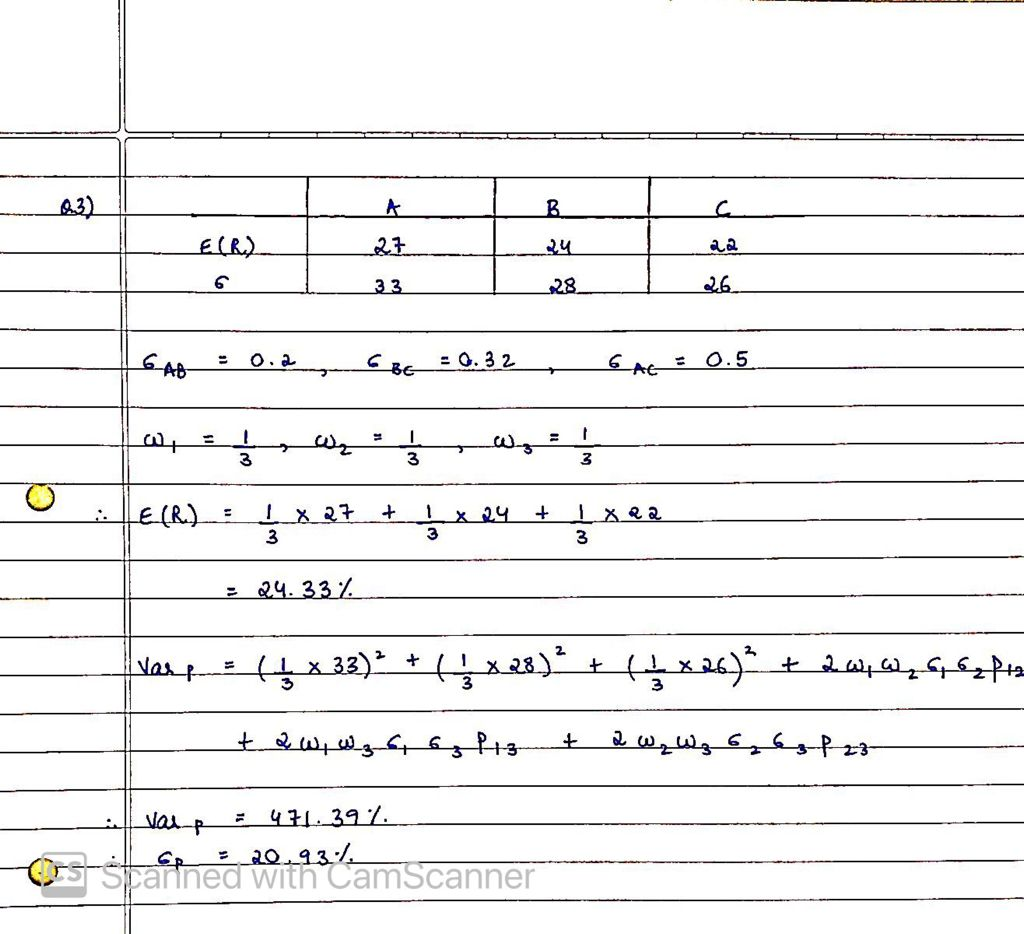 Q.3) A B C
E(R) 27 24 22
σ 33 28 26
σ AB = 0.2 , σ BC = 0.32 , σ AC = 0.5
ω₁ = 1/3 , ω₂ = 1/3 , ω₃ = 1/3
∴ E(R) = 1/3 × 27 + 1/3 × 24 + 1/3 × 22
= 24.33%
Var p = (1/3 × 33)² + (1/3 × 28)² + (1/3 × 26)² + 2 ω₁ ω₂ σ₁ σ₂ ρ₁₂
+ 2 ω₁ ω₃ σ₁ σ₃ ρ₁₃ + 2 ω₂ ω₃ σ₂ σ₃ ρ₂₃
∴ Var p = 471.39%
∴ σp = 20.93%
CS Scanned with CamScanner